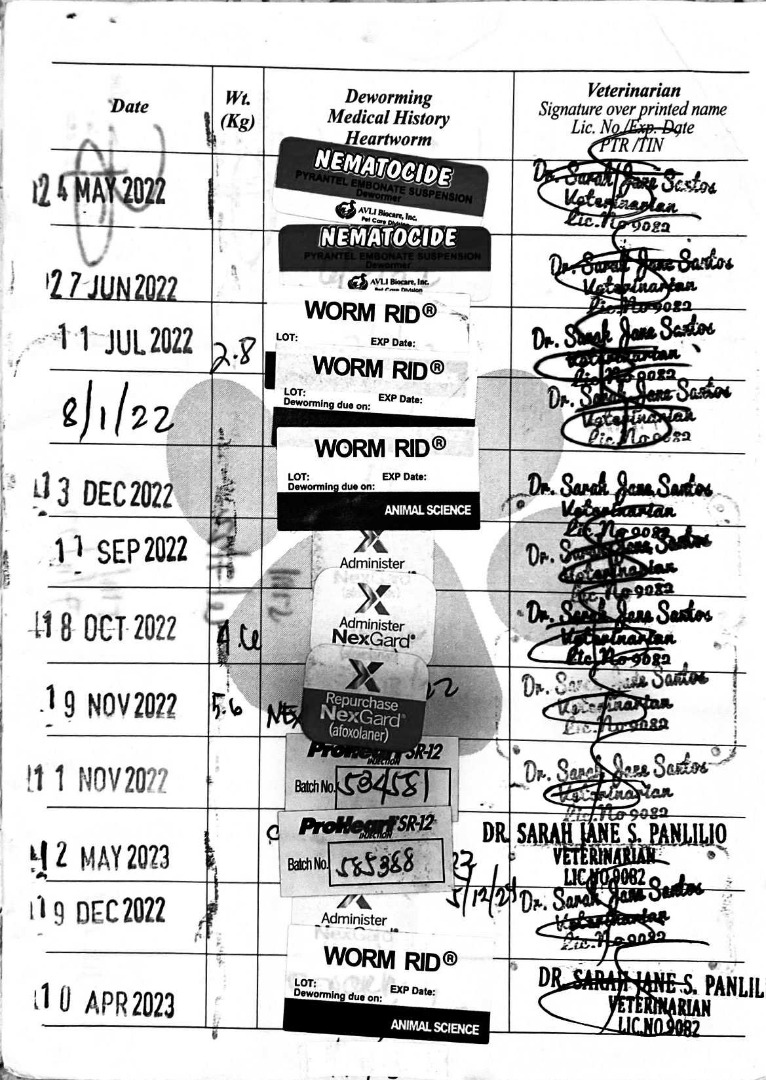 Date
Wt.
(Kg)
Deworming
Medical History
Heartworm
Veterinarian
Signature over printed name
Lic. No /Exp. Date
PTR /TIN
24 MAY 2022
NEMATOCIDE
PYRANTEL EMBONATE SUSPENSION
Dewormer
AVLI Biocare, Inc.
Pet Care Division
Dr. Sarah Jane Santos
Veterinarian
Lic. No 9082
27 JUN 2022
NEMATOCIDE
PYRANTEL EMBONATE SUSPENSION
Dewormer
AVLI Biocare, Inc.
Pet Care Division
Dr. Sarah Jane Santos
Veterinarian
Lic. No 9082
11 JUL 2022
2.8
WORM RID®
LOT: EXP Date:
Dr. Sarah Jane Santos
Veterinarian
Lic. No 9082
8/1/22
WORM RID®
LOT: EXP Date:
Deworming due on:
Dr. Sarah Jane Santos
Veterinarian
Lic. No 9082
3 DEC 2022
WORM RID®
LOT: EXP Date:
Deworming due on:
ANIMAL SCIENCE
Dr. Sarah Jane Santos
Veterinarian
Lic. No 9082
SEP 2022
Administer
NexGard
Dr. Sarah Jane Santos
Veterinarian
Lic. No 9082
18 OCT 2022
Administer
NexGard®
Dr. Sarah Jane Santos
Veterinarian
Lic. No 9082
19 NOV 2022
5.6
NEX
Repurchase
NexGard®
(afoxolaner)
Dr. Sarah Jane Santos
Veterinarian
Lic. No 9082
11 NOV 2022
ProHeart SR-12
INJECTION
Batch No. 534581
Dr. Sarah Jane Santos
Veterinarian
Lic. No 9082
2 MAY 2023
ProHeart® SR-12
INJECTION
Batch No. 585388
DR. SARAH JANE S. PANLILIO
VETERINARIAN
LIC.NO.9082
19 DEC 2022
Administer
NexGard
Dr. Sarah Jane Santos
Veterinarian
Lic. No 9082
10 APR 2023
WORM RID®
LOT: EXP Date:
Deworming due on:
ANIMAL SCIENCE
DR. SARAH JANE S. PANLIL
VETERINARIAN
LIC.NO.9082